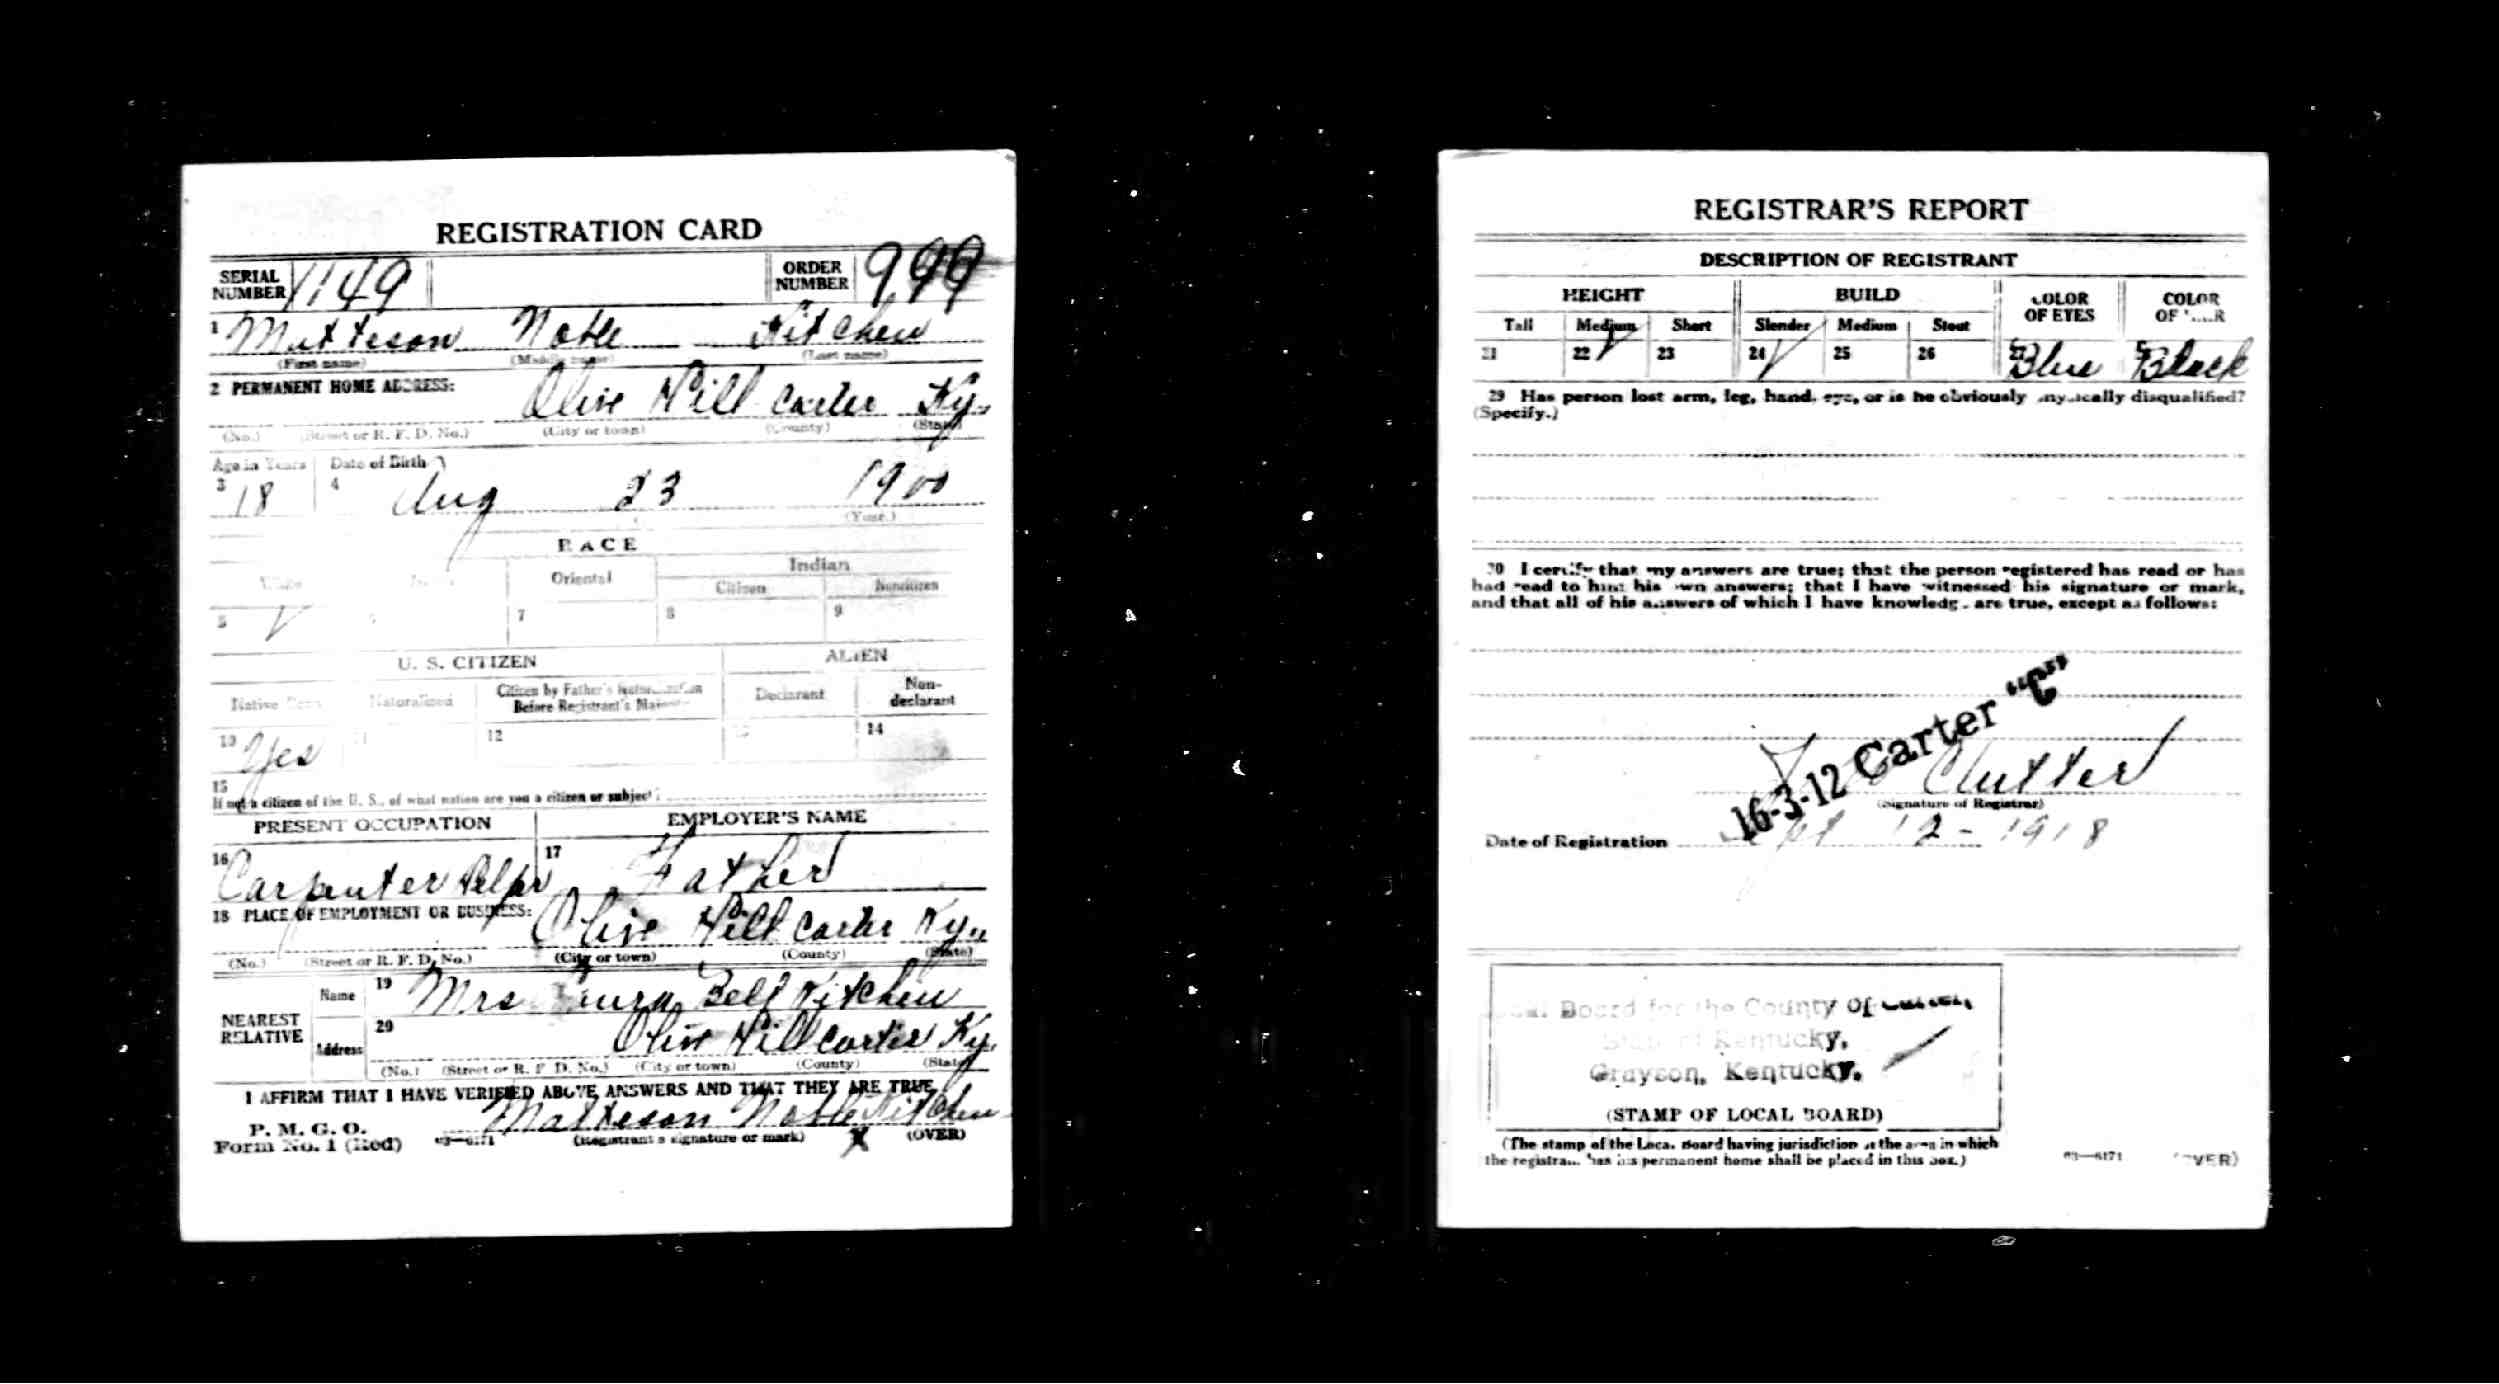 REGISTRATION CARD
SERIAL NUMBER 1149 ORDER NUMBER 999
1 Matteson Noble Kitchen
(First name) (Middle name) (Last name)
2 PERMANENT HOME ADDRESS:
Olive Hill Carter Ky.
(No.) (Street or R. F. D. No.) (City or town) (County) (State)
Age in Years Date of Birth
3 18 4 Aug 23 1900
(Year.)
RACE
White Oriental Indian
Citizen Noncitizen
5 ✓ 7 8 9
U. S. CITIZEN ALIEN
Native Born Naturalized Citizen by Father's Naturalization Before Registrant's Majority Declarant Non-declarant
10 Yes 11 12 13 14
15
If not a citizen of the U. S., of what nation are you a citizen or subject?
PRESENT OCCUPATION EMPLOYER'S NAME
16 Carpenter Helper 17 Father
18 PLACE OF EMPLOYMENT OR BUSINESS:
Olive Hill Carter Ky.
(No.) (Street or R. F. D. No.) (City or town) (County) (State)
NEAREST RELATIVE
Name 19 Mrs Laura Bell Kitchen
Address 20 Olive Hill Carter Ky.
(No.) (Street or R. F. D. No.) (City or town) (County) (State)
I AFFIRM THAT I HAVE VERIFIED ABOVE ANSWERS AND THAT THEY ARE TRUE
Matteson Noble Kitchen
P. M. G. O.
Form No. 1 (Red) 03—6171 (Registrant's signature or mark) X (OVER)
REGISTRAR'S REPORT
DESCRIPTION OF REGISTRANT
HEIGHT BUILD COLOR OF EYES COLOR OF HAIR
Tall Medium Short Slender Medium Stout
21 22 ✓ 23 24 ✓ 25 26 27 Blue Black
29 Has person lost arm, leg, hand, eye, or is he obviously physically disqualified?
(Specify.)
30 I certify that my answers are true; that the person registered has read or has
had read to him his own answers; that I have witnessed his signature or mark,
and that all of his answers of which I have knowledge are true, except as follows:
16-3-12 Carter "C"
Clutter
(Signature of Registrar)
Date of Registration Sept 12 - 1918
Local Board for the County of Carter,
State of Kentucky,
Grayson, Kentucky.
(STAMP OF LOCAL BOARD)
(The stamp of the Local Board having jurisdiction of the area in which
the registrant has his permanent home shall be placed in this box.)
03—6171 (OVER)